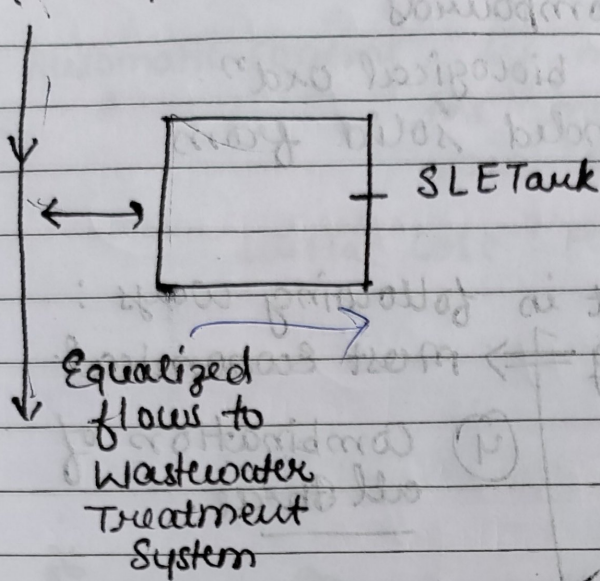 SLE Tank
Equalized
flows to
Wastewater
Treatment
System